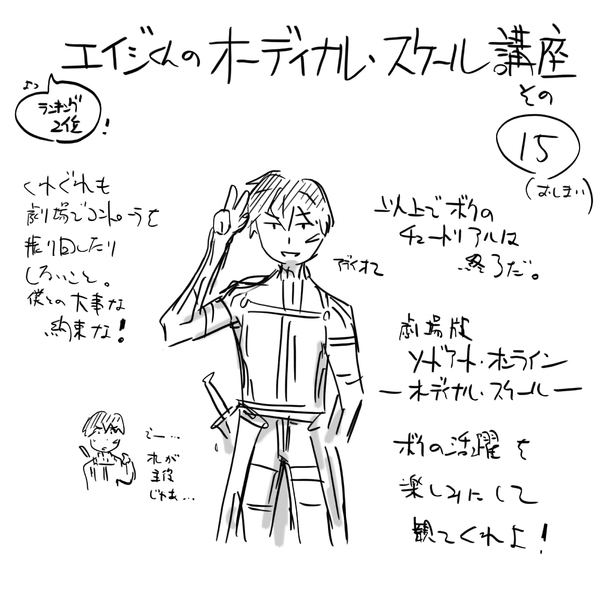 エイジくんのオーディナル・スケール講座
その
15
(おしまい)
ランキング
2位
!
くれぐれも
劇場でコントローラを
振り回したり
しないこと。
僕との大事な
約束な!
以上でボクの
チュートリアルは
終了だ。
劇場版
ソードアート・オンライン
―オーディナル・スケール―
ボクの活躍を
楽しみにして
観てくれよ!
えー…
オレが
主役
じゃあ…